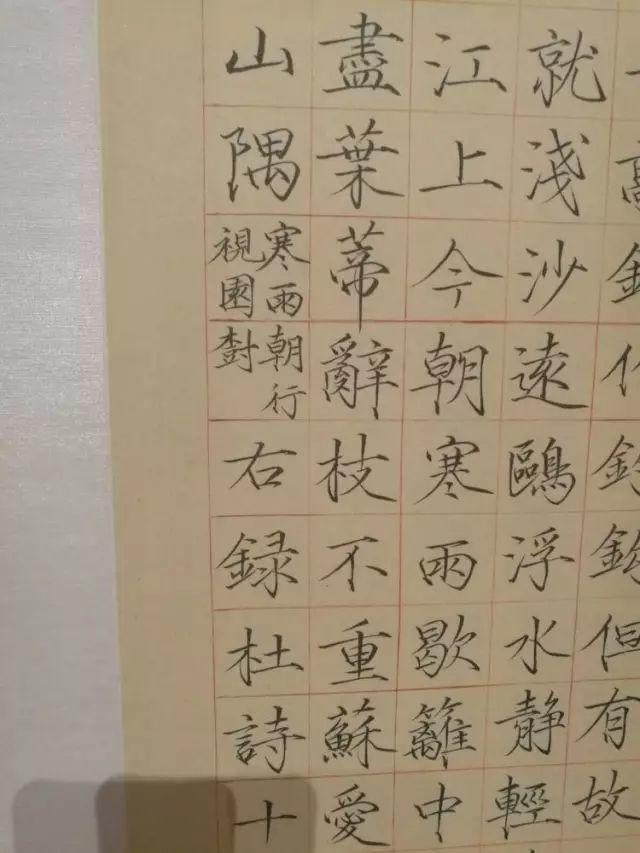 但有故
就淺沙遠鷗浮水靜輕
江上今朝寒雨歇籬中
盡葉蒂辭枝不重蘇愛
山隅寒雨朝行視園樹右録杜詩十